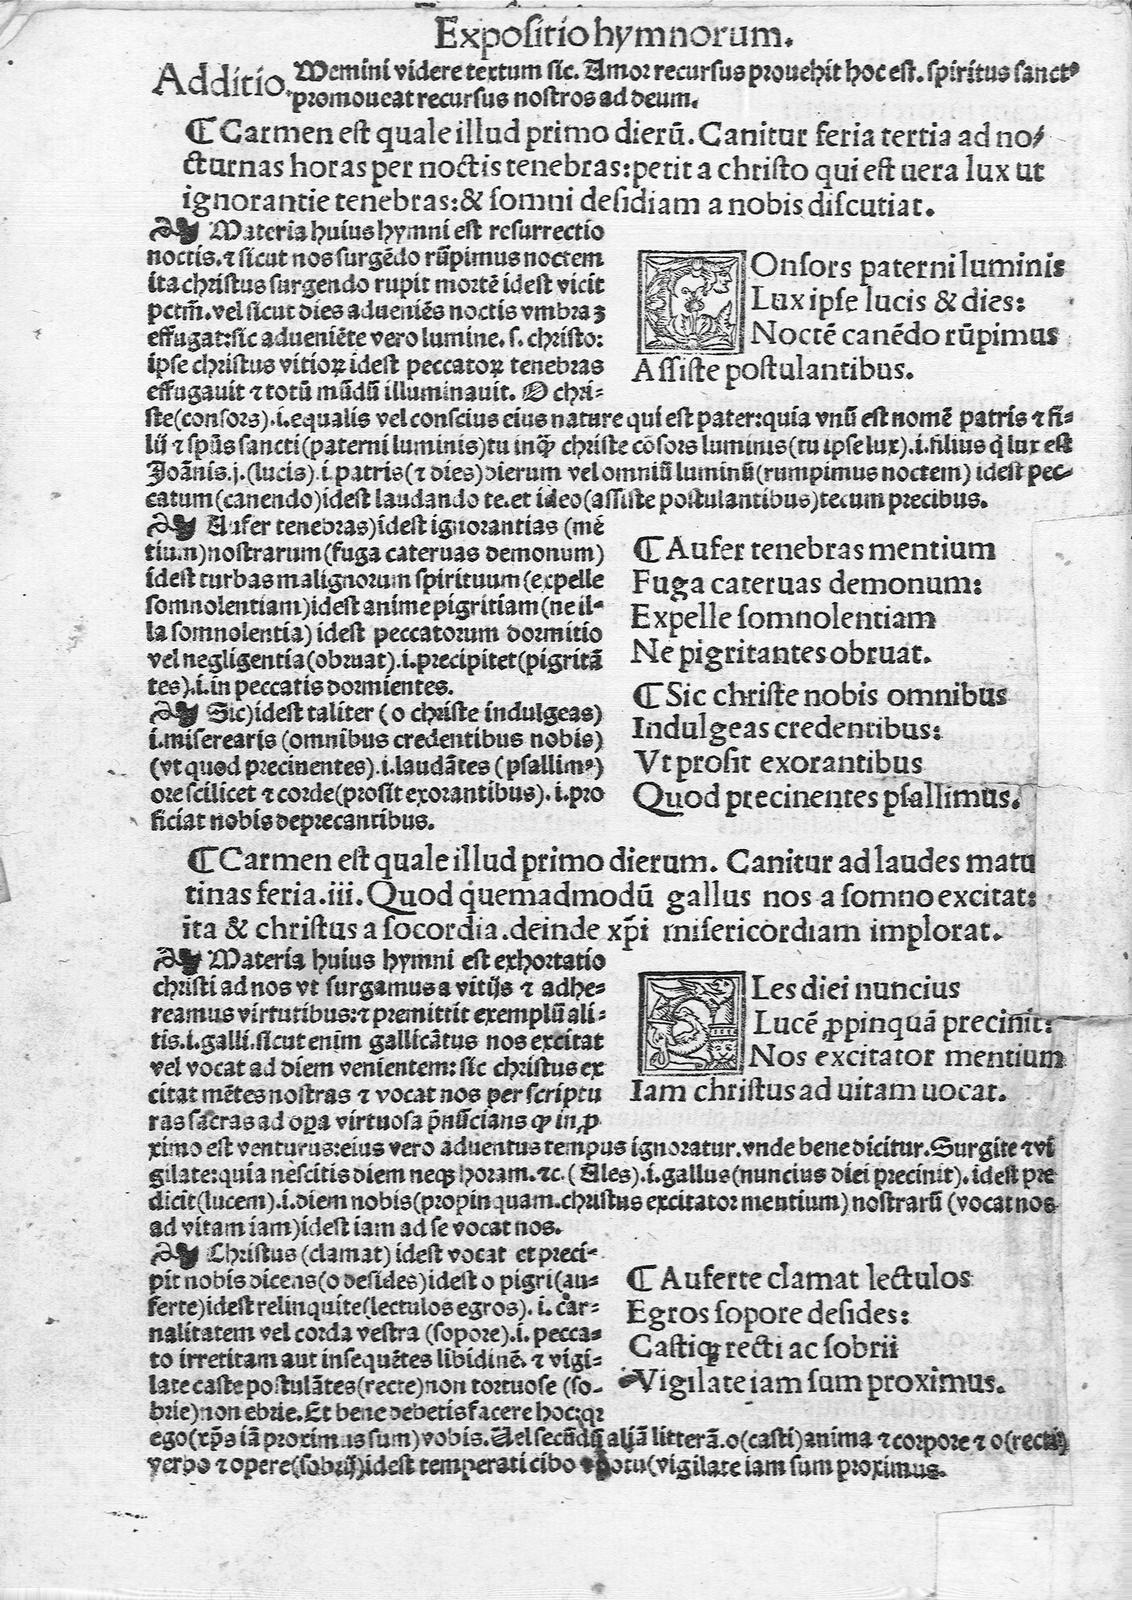 Expositio hymnorum.
Additio. Memini videre textum sic. Amor recursus prouehit hoc est. spiritus sanctꝰ
promoueat recursus nostros ad deum.
¶ Carmen est quale illud primo dierū. Canitur feria tertia ad no/
cturnas horas per noctis tenebras: petit a christo qui est uera lux ut
ignorantie tenebras: & somni desidiam a nobis discutiat.
❧ Materia huius hymni est resurrectio
noctis. ⁊ sicut nos surgēdo rūpimus noctem
ita christus surgendo rupit mortē idest vicit
pctm̄. vel sicut dies adueniēs noctis vmbraꝫ
effugat: sic adueniēte vero lumine. s. christo:
ipse christus vitioꝝ idest peccatoꝝ tenebras
effugauit ⁊ totū mūdū illuminauit. O chri-
Consors paterni luminis
Lux ipse lucis & dies:
Noctē canēdo rūpimus
Assiste postulantibus.
ste(consors).i.equalis vel conscius eius nature qui est pater: quia vnū est nomē patris ⁊ fi-
lij ⁊ spūs sancti(paterni luminis)tu inqͣ christe cōsors luminis(tu ipse lux).i.filius q̇ lux est
Joānis.j.(lucis).i.patris(⁊ dies)dierum vel omniū luminū(rumpimus noctem) idest pec-
catum(canendo)idest laudando te.et ideo(assiste postulantibus)tecum precibus.
❧ Aufer tenebras)idest ignorantias (mē
tium)nostrarum(fuga cateruas demonum)
idest turbas malignorum spirituum(expelle
somnolentiam)idest anime pigritiam(ne il-
la somnolentia) idest peccatorum dormitio
vel negligentia(obruat).i.precipitet(pigritā
tes).i.in peccatis dormientes.
¶ Aufer tenebras mentium
Fuga cateruas demonum:
Expelle somnolentiam
Ne pigritantes obruat.
❧ Sic)idest taliter (o christe indulgeas)
i.miserearis (omnibus credentibus nobis)
(vt quod precinentes).i.laudātes (psallimꝰ)
ore scilicet ⁊ corde(prosit exorantibus).i.pro
ficiat nobis deprecantibus.
¶ Sic christe nobis omnibus
Indulgeas credentibus:
Vt prosit exorantibus
Quod precinentes psallimus.
¶ Carmen est quale illud primo dierum. Canitur ad laudes matu
tinas feria.iii. Quod quemadmodū gallus nos a somno excitat:
ita & christus a socordia.deinde xp̄i misericordiam implorat.
❧ Materia huius hymni est exhortatio
christi ad nos vt surgamus a vitijs ⁊ adhe-
reamus virtutibus: ⁊ premittit exemplū ali-
tis.i.galli.sicut enim gallicātus nos excitat
vel vocat ad diem venientem: sic christus ex
citat mētes nostras ⁊ vocat nos per scriptu
ras sacras ad oꝑa virtuosa p̄nūcians ꝙ in ꝓ
Ales diei nuncius
Lucē ꝓpinquā precinit:
Nos excitator mentium
Iam christus ad uitam uocat.
ximo est venturus: eius vero aduentus tempus ignoratur. vnde bene dicitur. Surgite ⁊ vi
gilate: quia nescitis diem neqꝫ horam. ⁊c. (Ales).i.gallus(nuncius diei precinit).idest pre
dicit(lucem).i.diem nobis(propinquam.christus excitator mentium) nostrarū (vocat nos
ad vitam iam)idest iam ad se vocat nos.
❧ Christus (clamat) idest vocat et preci-
pit nobis dicens(o desides)idest o pigri(au-
ferte)idest relinquite(lectulos egros).i.car-
nalitatem vel corda vestra (sopore).i. pecca-
to irretitam aut insequētes libidinē. ⁊ vigi-
late caste postulātes(recte)non tortuose (so-
brie)non ebrie. Et bene debetis facere hoc: qꝛ
¶ Auferte clamat lectulos
Egros sopore desides:
Castiqꝫ recti ac sobrii
Vigilate iam sum proximus.
ego(xp̄s iā proximus sum)vobis. Uel secūdū aliā litterā.o(casti)anima ⁊ corpore ⁊ o(recti)
verbo ⁊ opere(sobrij)idest temperati cibo ⁊ potu(vigilate iam sum proximus.